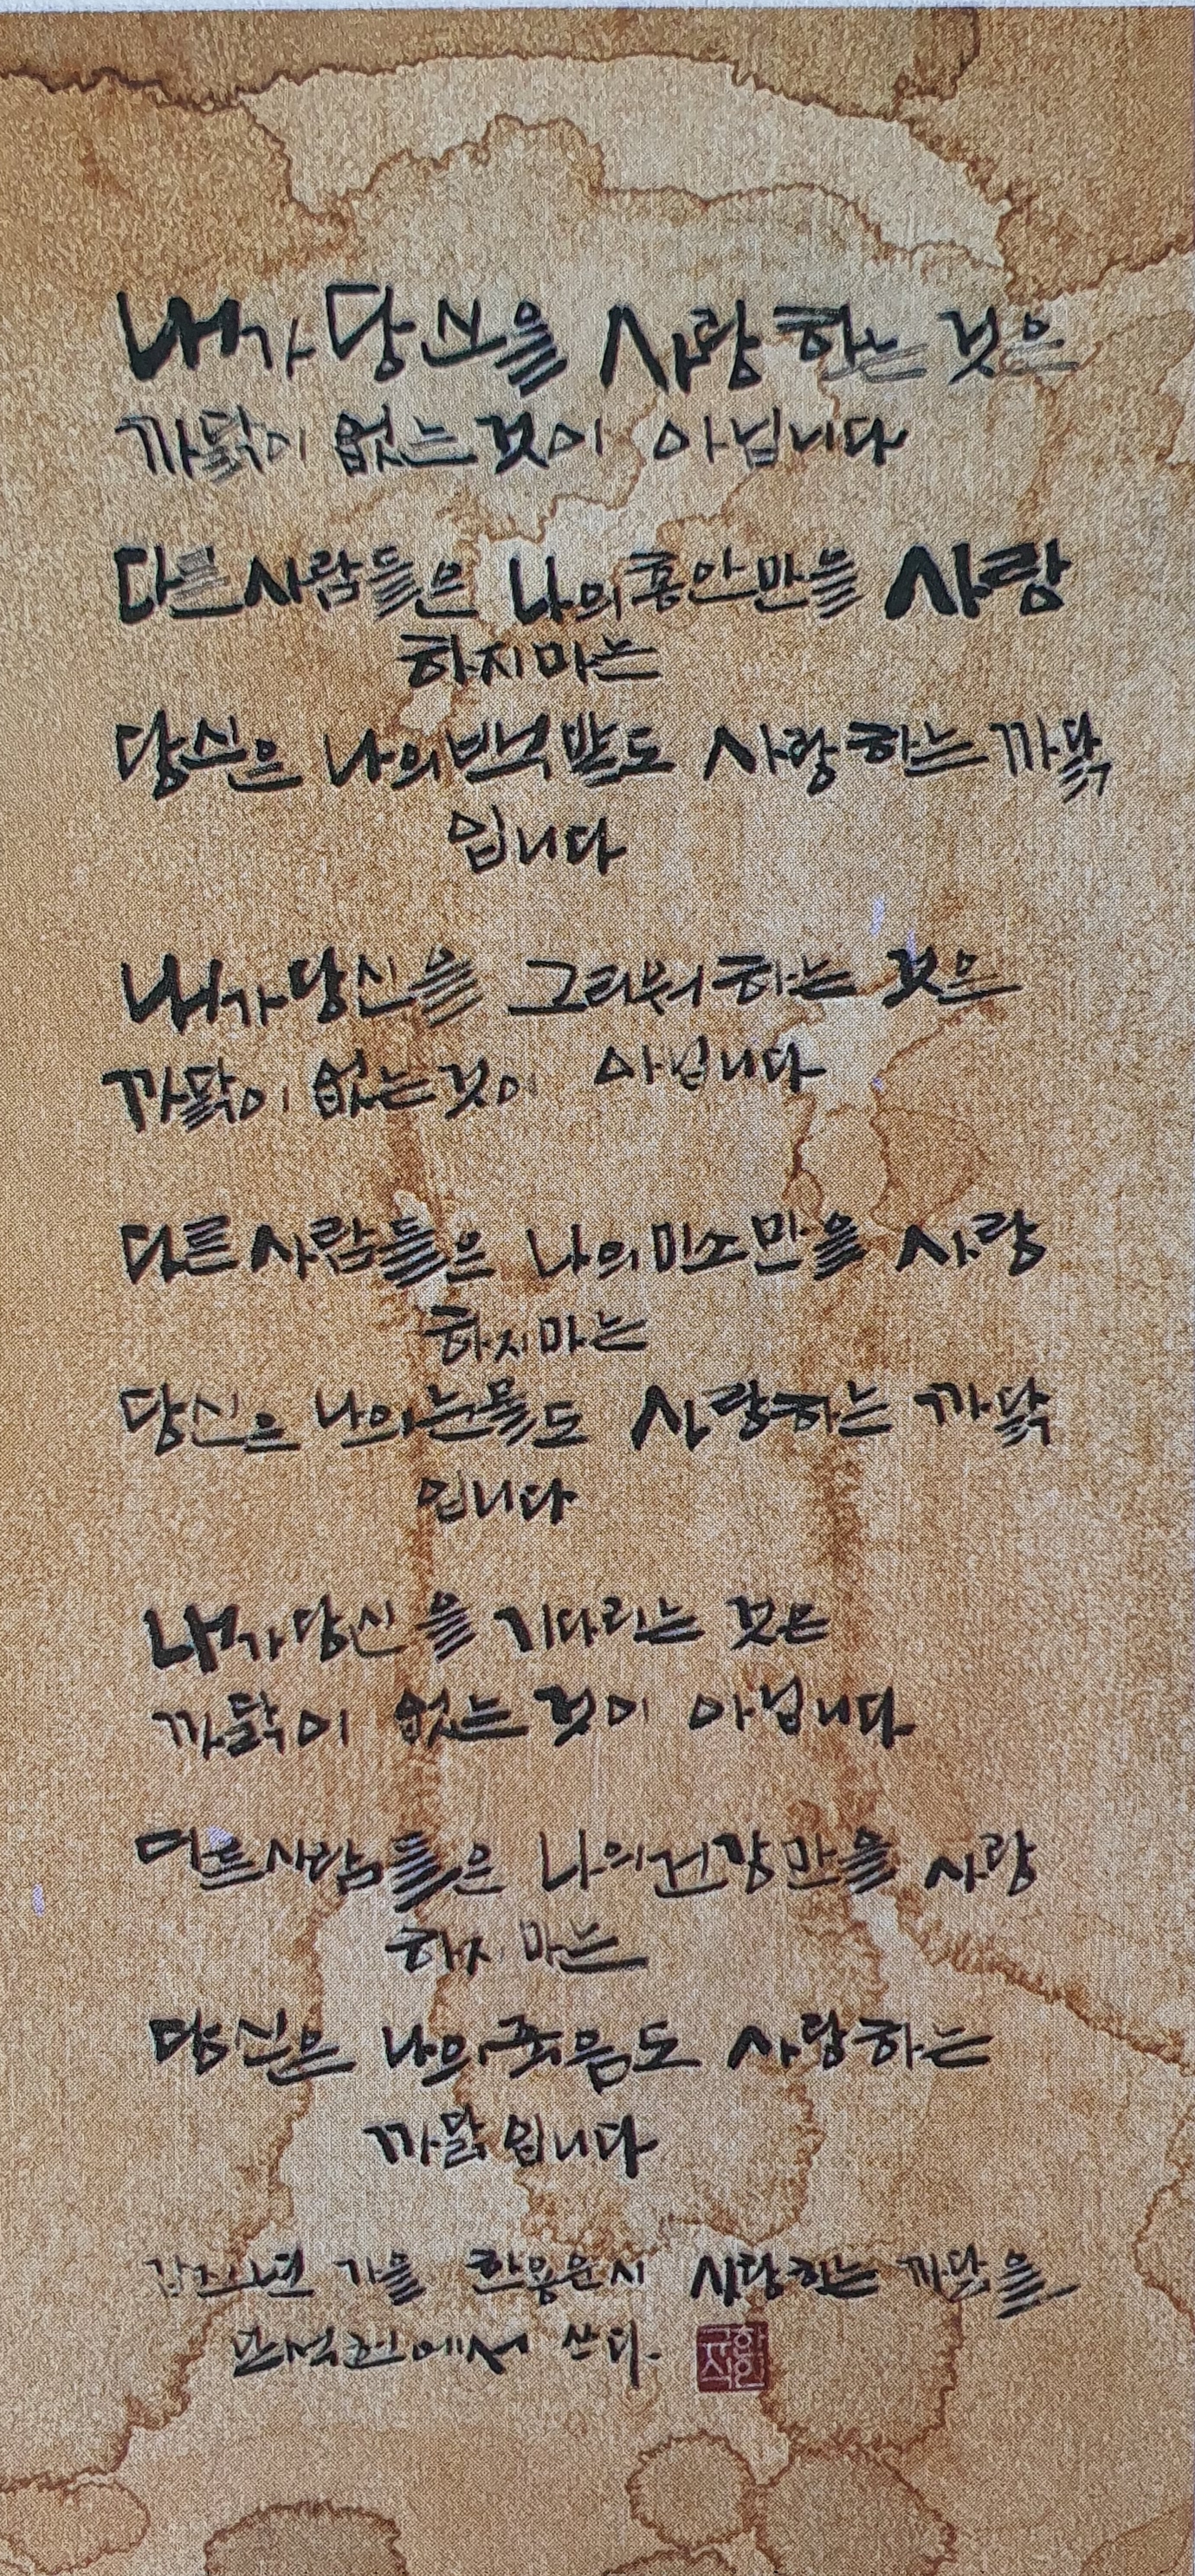 내가 당신을 사랑하는 것은
까닭이 없는 것이 아닙니다
다른 사람들은 나의 홍안만을 사랑
하지마는
당신은 나의 백발도 사랑하는 까닭
입니다
내가 당신을 그리워하는 것은
까닭이 없는 것이 아닙니다
다른 사람들은 나의 미소만을 사랑
하지마는
당신은 나의 눈물도 사랑하는 까닭
입니다
내가 당신을 기다리는 것은
까닭이 없는 것이 아닙니다
다른 사람들은 나의 건강만을 사랑
하지마는
당신은 나의 죽음도 사랑하는
까닭입니다
갑진년 가을 한용운 시 사랑하는 까닭을
쓰다.